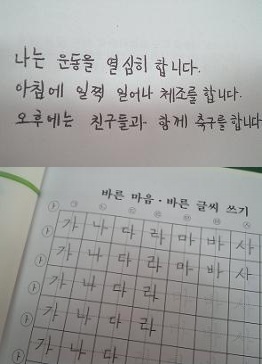 나는 운동을 열심히 합니다.
아침에 일찍 일어나 체조를 합니다.
오후에는 친구들과 함께 축구를 합니다
바른 마음·바른 글씨 쓰기
가 나 다 라 마 바 사
가 나 다 라 마 바 사
가 나 다 라
가 나 다 라
가 나 다